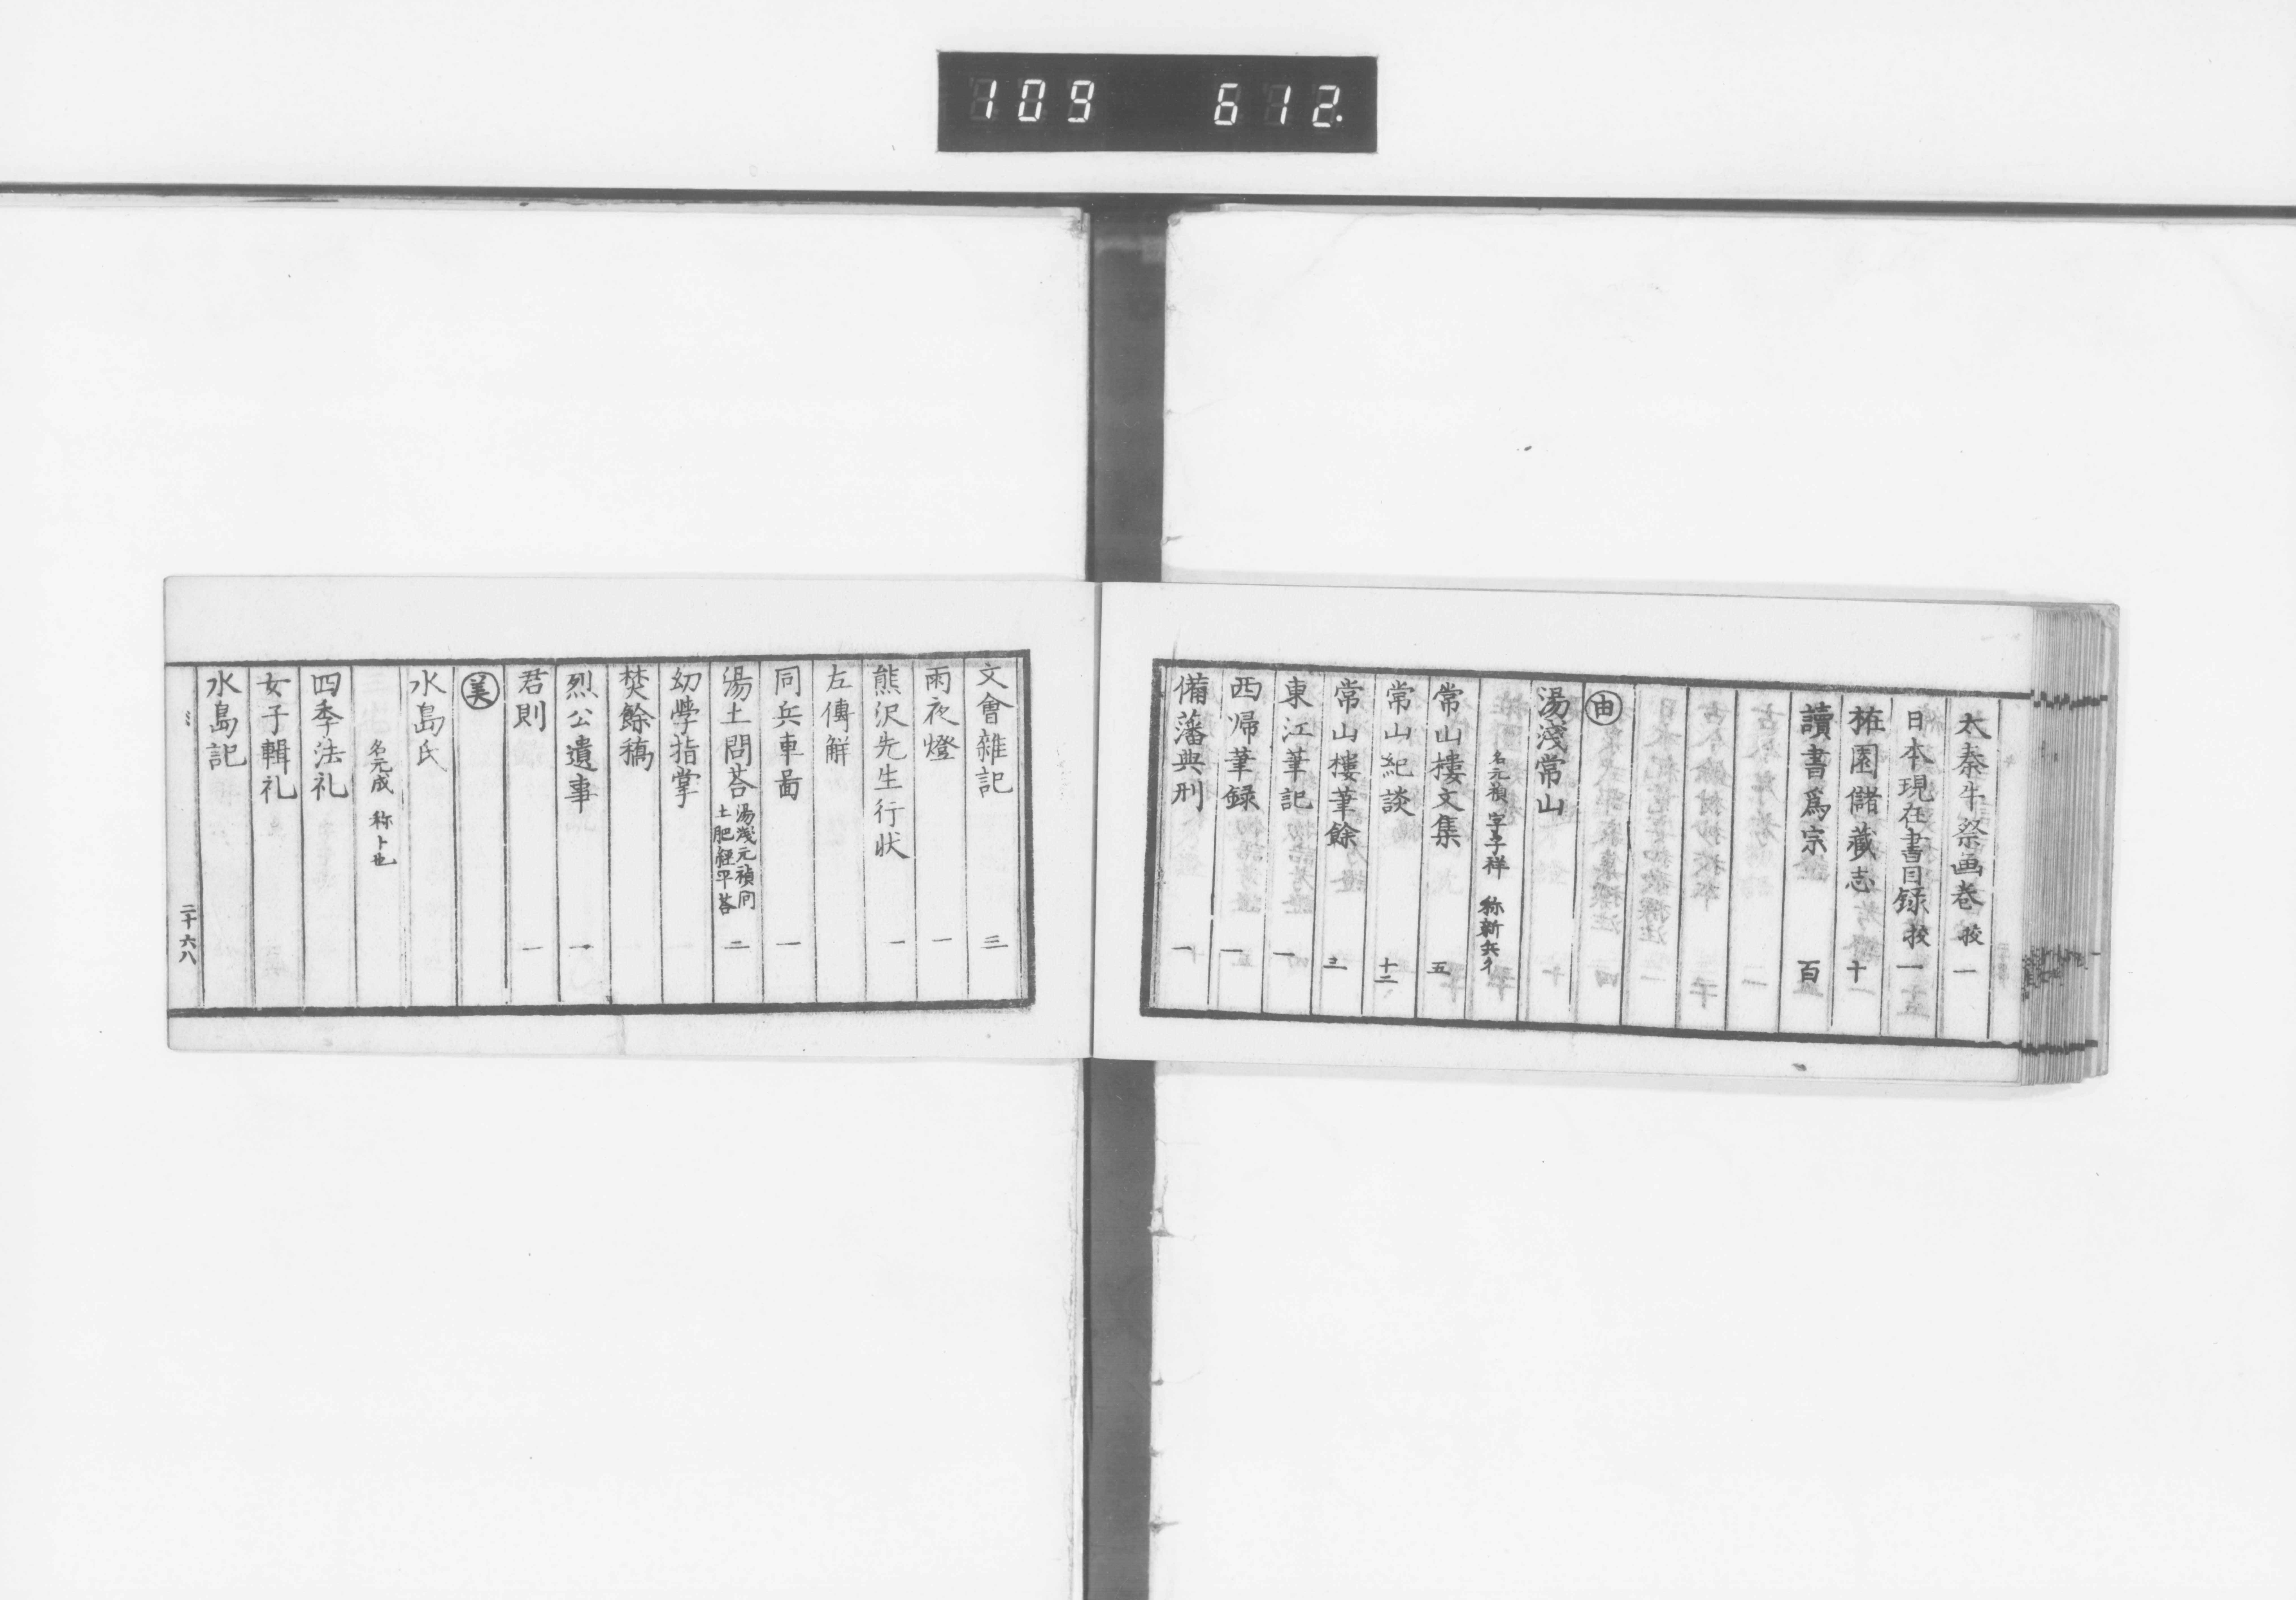 109 612.
太秦牛祭画巻 校 一
日本現在書目録 挍 一
桩園儲藏志 十
讀書爲宗 百
由
湯淺常山
名元禎 字子祥 称新兵ヱ
常山樓文集 五
常山紀談 十二
常山樓筆餘 三
東江筆記 一
西帰筆録 一
備藩典刑 一
文會雜記 三
雨夜燈 一
熊沢先生行状 一
左傳解
同兵車啚 一
湯土問荅 湯浅元禎問 土肥経平荅 二
幼學指掌
焚餘稿
烈公遺事 一
君則 一
美
水島氏
名元成 称卜也
四季法礼
女子輯礼
水島記
二十六八